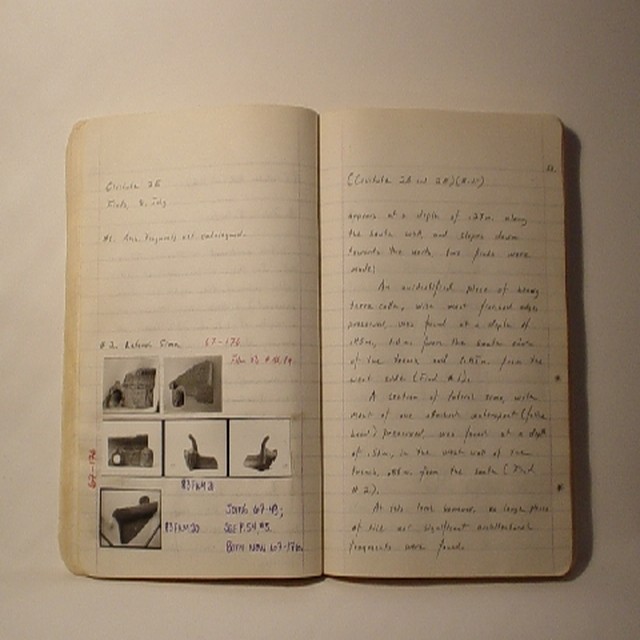 Finds, 8, July
#1. Arch. Fragments not catalogued.
#2. Lateral Sima 67-176
67-176
83 FKM 28
83 FKM 20
Joins 67-43;
See P. 54, 55.
Both now 67-176.
appears at a depth of .27m. along
the south wall and slopes down
towards the north. Two finds were
made:
An unidentified piece of heavy
terra cotta, with most finished edges
preserved, was found at a depth of
from the south
of the trench and from the
west side (Find #1).
A section of lateral sima, with
most of one attached waterspout (feline
head) preserved, was found at a depth
of .51m, in the west wall of the
trench, from the south (Find
#2).
At this level however, no large piece
of tile or significant architectural
fragments were found.